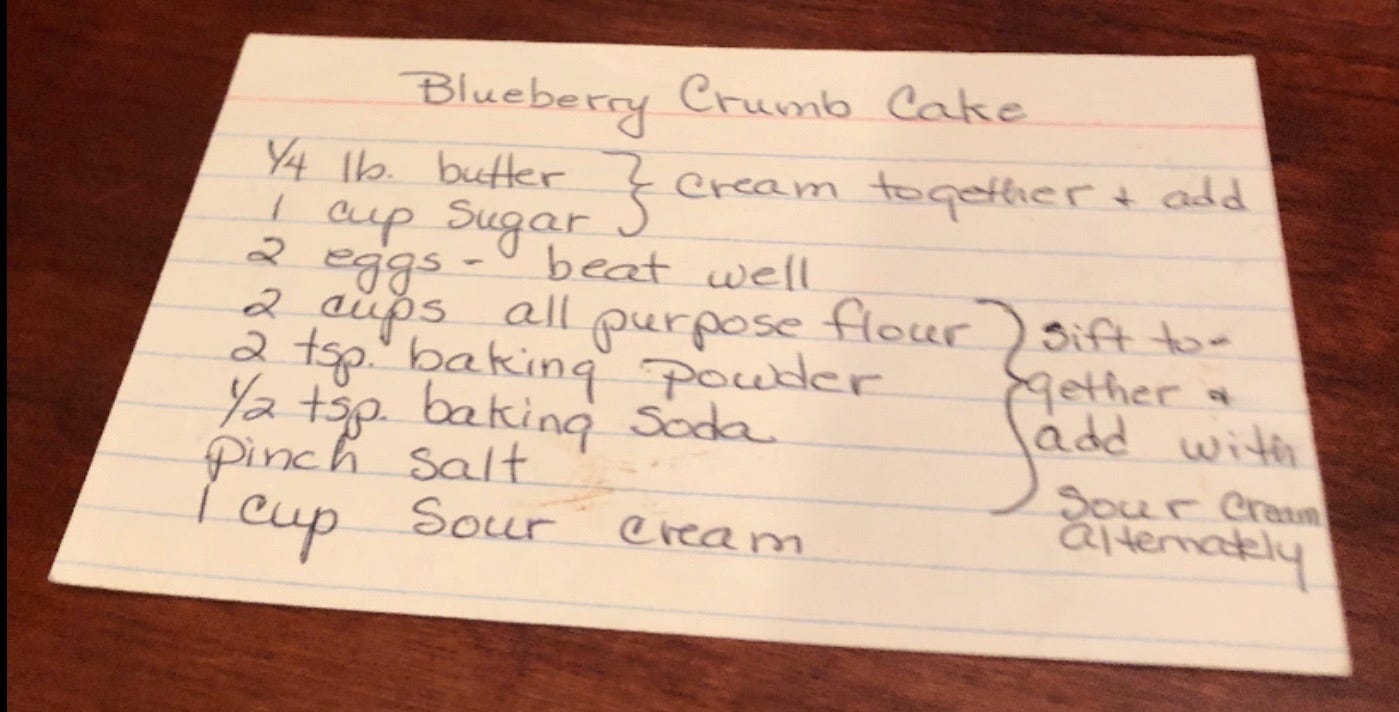 Blueberry Crumb Cake
1/4 lb. butter } cream together + add
1 cup sugar
2 eggs - beat well
2 cups all purpose flour } sift to-
2 tsp. baking powder gether &
1/2 tsp. baking soda add with
pinch salt sour cream
1 cup sour cream alternately